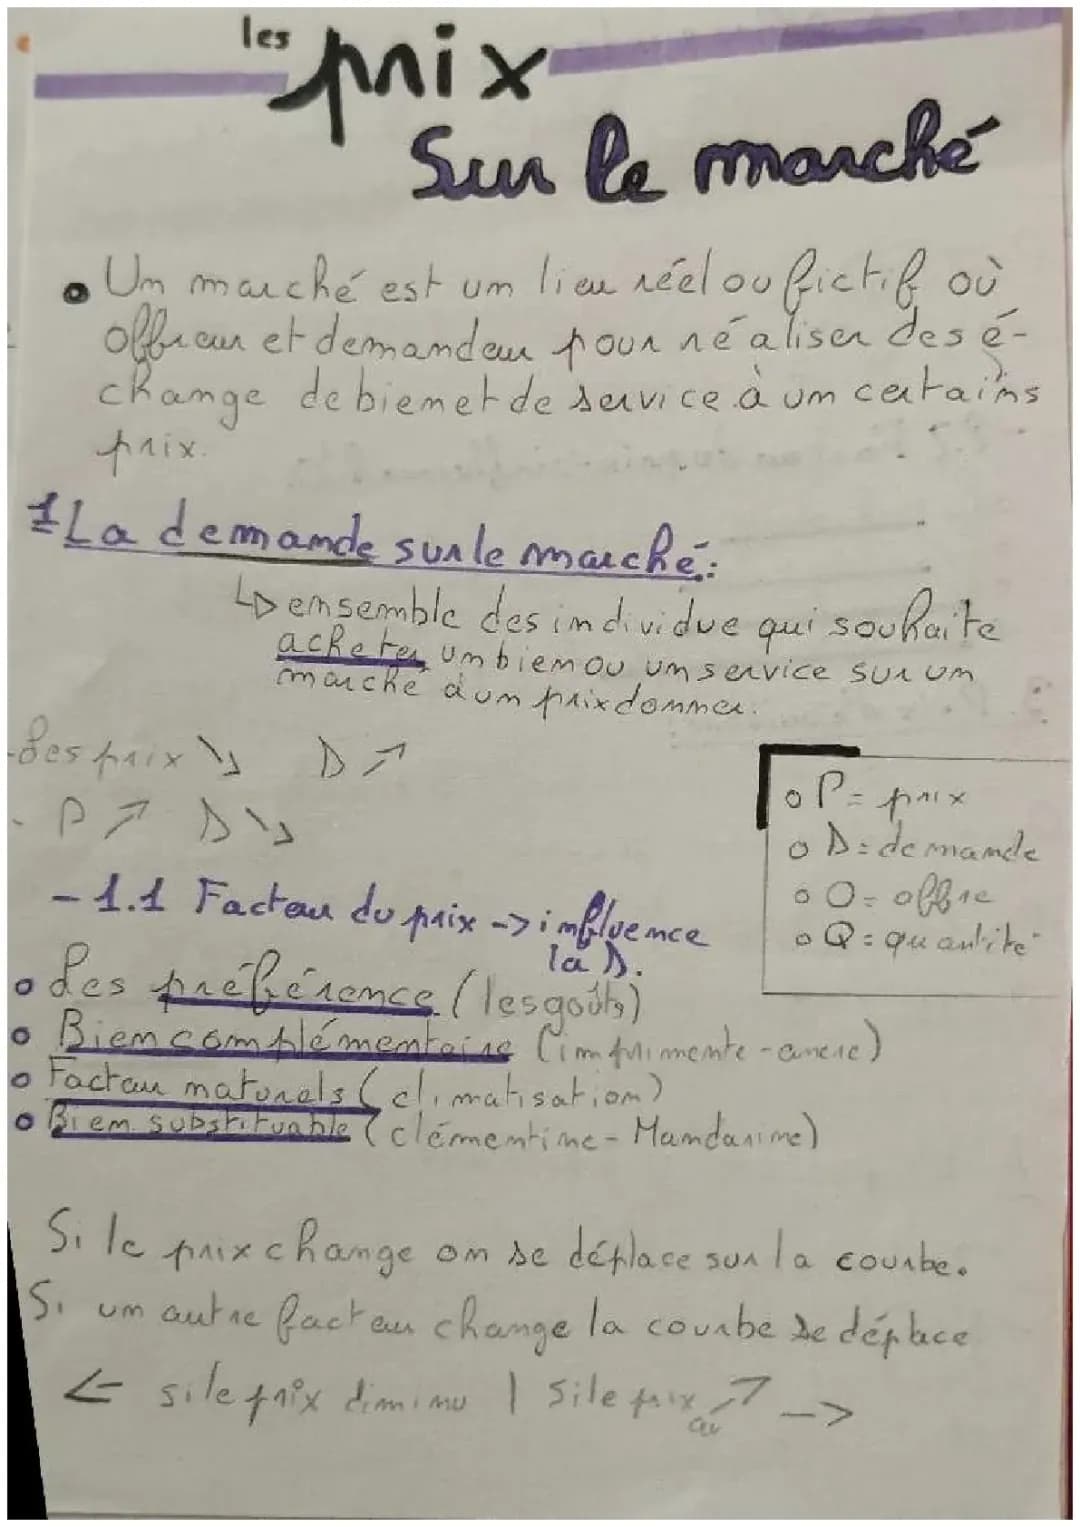 les
prix
Sur le marché
• Un marché est un lieu réel ou fictif où
offreur et demandeur pour réaliser des é-
change de bien et de service à un certains
prix.
1 La demande sur le marché:
↳ ensemble des individue qui souhaite
acheter un bien ou un service sur un
marché à un prix donner.
- Les prix ↘ D ↗
- P ↗ D ↘
o P = prix
o D = demande
o O = offre
o Q = quantité
- 1.1 Facteur du prix -> influence
la D.
o Les préférence (les goûts)
o Bien complémentaire (imprimente - encre)
o Facteur naturels (climatisation)
o Bien substituable (clémentine - Mandarine)
Si le prix change on se déplace sur la courbe.
Si un autre facteur change la courbe se déplace
<- si le prix diminu | Si le prix ↗ ->